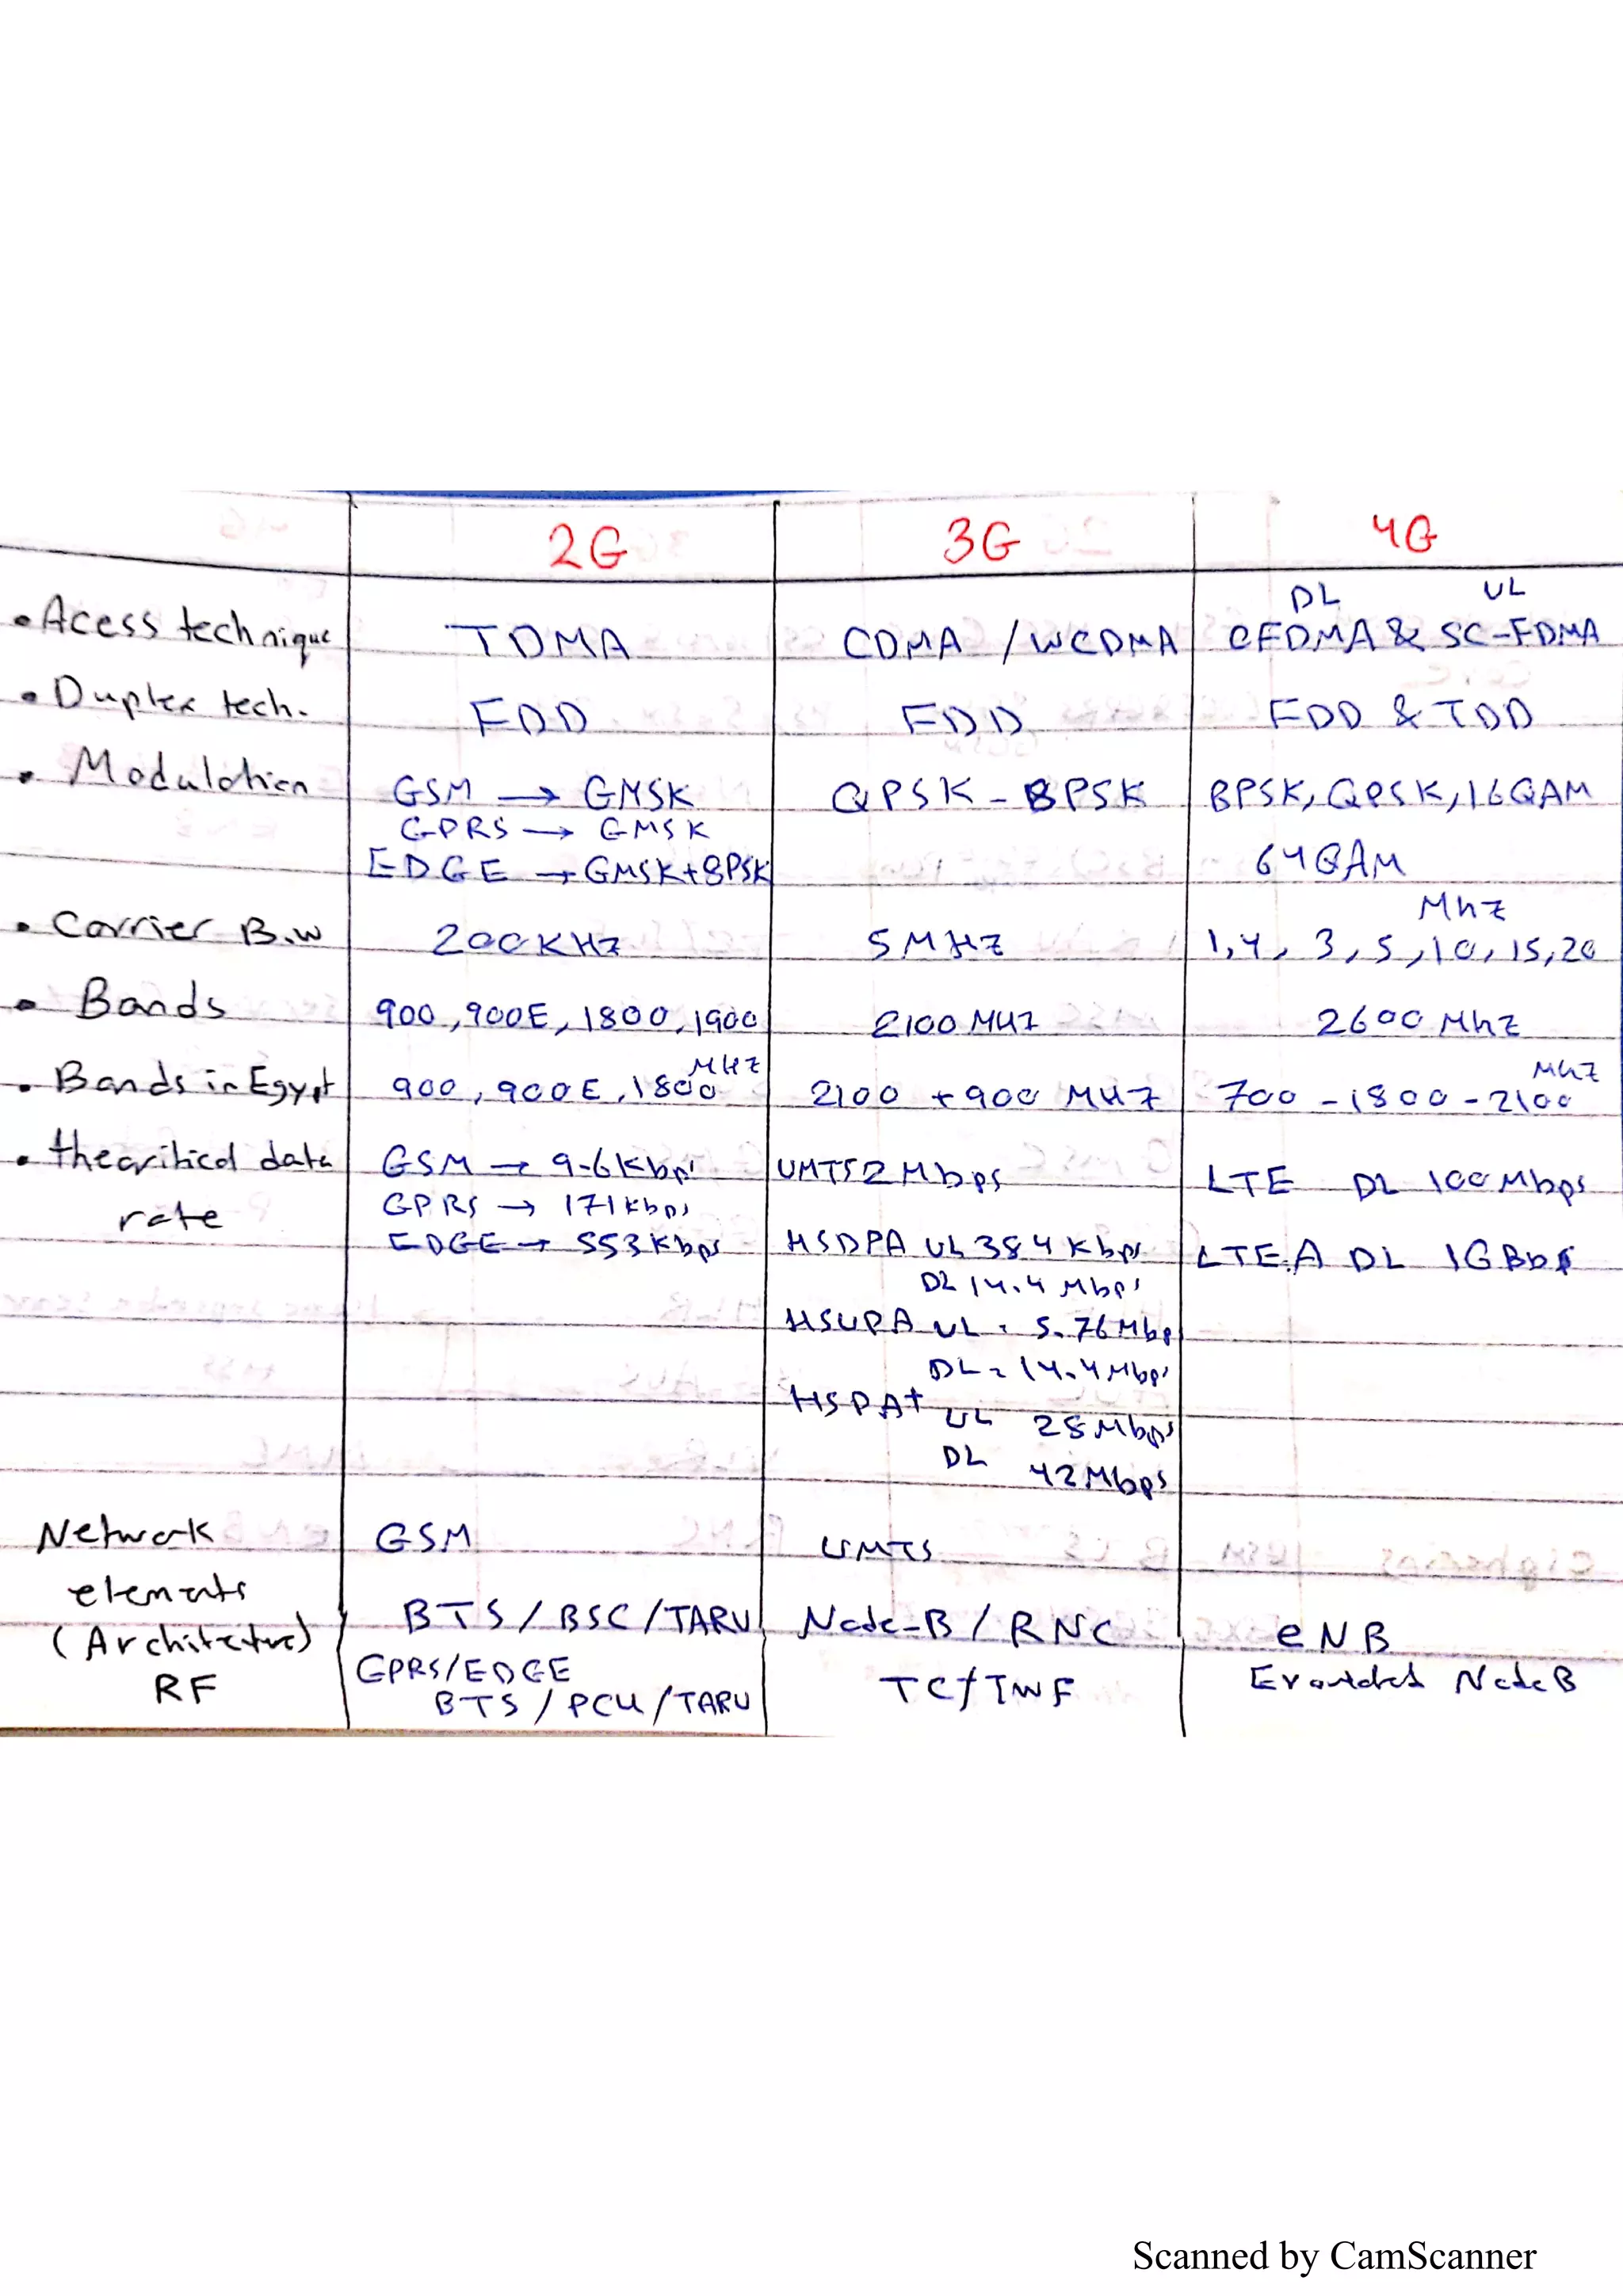 2G 3G 4G
DL UL
• Acess technique TDMA CDMA / WCDMA OFDMA & SC-FDMA
• Duplex tech. FDD FDD FDD & TDD
• Modulation GSM → GMSK QPSK - 8PSK BPSK, QPSK, 16QAM
GPRS → GMSK
EDGE → GMSK+8PSK 64QAM
MhZ
• Carrier B.w 200KHZ 5MHZ 1,4, 3, 5, 10, 15, 20
• Bands 900, 900E, 1800, 1900 2100 MHZ 2600 MhZ
MHZ MhZ
• Bands in Egypt 900, 900E, 1800 2100 + 900 MHZ 700 - 1800 - 2100
• theoritical data GSM → 9.6Kbps UMTS 2Mbps LTE DL 100Mbps
rate GPRS → 171Kbps
EDGE → 553Kbps HSDPA UL 384Kbps LTE.A DL 1GBbs
DL 14.4 Mbps
HSUPA UL : 5.76Mbp
DL = 14.4Mbps
HSPA+ UL 28Mbps
DL 42Mbps
Network GSM UMTS
elements BTS / BSC / TARU Node-B / RNC eNB
(Architetture) GPRS/EDGE NodeB
RF BTS / PCU / TARU TC/IWF
Scanned by CamScanner